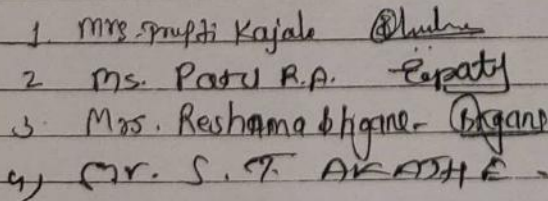 1. Mrs. Prupti Kajale
2 Ms. Patil R.A.
3. Mrs. Reshama bhgane - Bhgane
4) Mr. S. T. AKASHE -